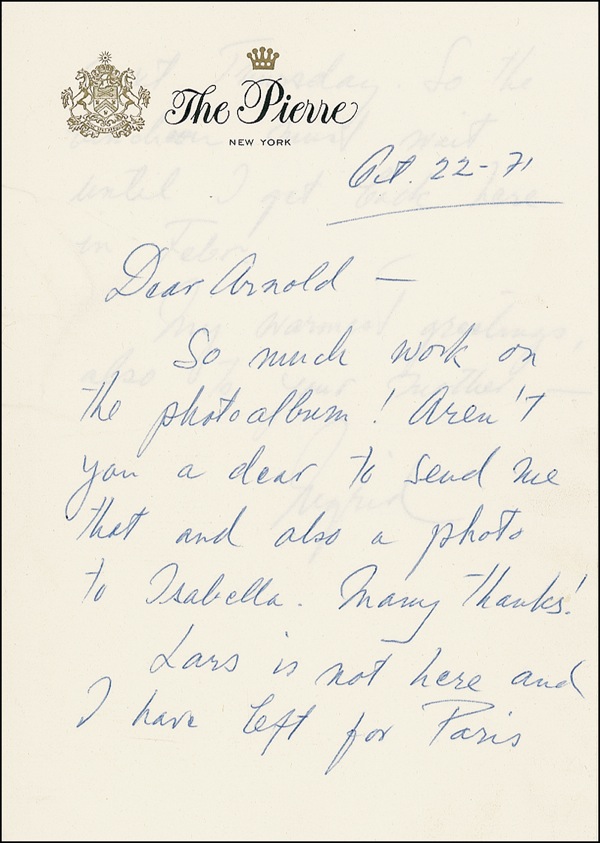 The Pierre
NEW YORK
Oct. 22-71
Dear Arnold —
So much work on
the photoalbum! Aren't
you a dear to send me
that and also a photo
to Isabella. Many thanks!
Lars is not here and
I have left for Paris